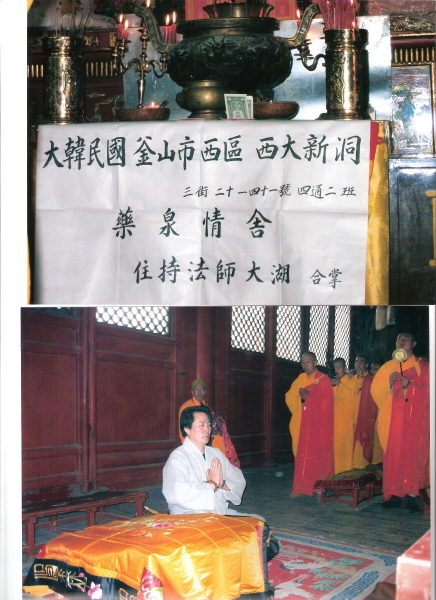 大韓民國 釜山市西區 西大新洞
三街 二十一四十一號 四通二班
藥泉情舍
住持法師大湖 合掌